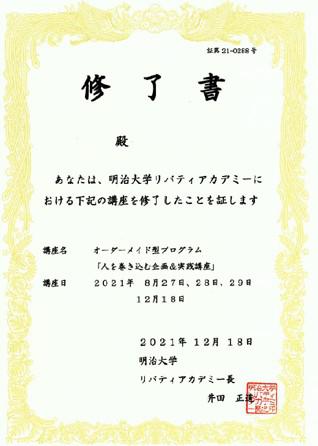 証異 21-0288 号
修了書
殿
あなたは、明治大学リバティアカデミーに
おける下記の講座を修了したことを証します
講座名 オーダーメイド型プログラム
「人を巻き込む企画&実践講座」
講座日 2021年 8月27日、28日、29日
12月18日
2021年 12月 18日
明治大学
リバティアカデミー長
井田 正道